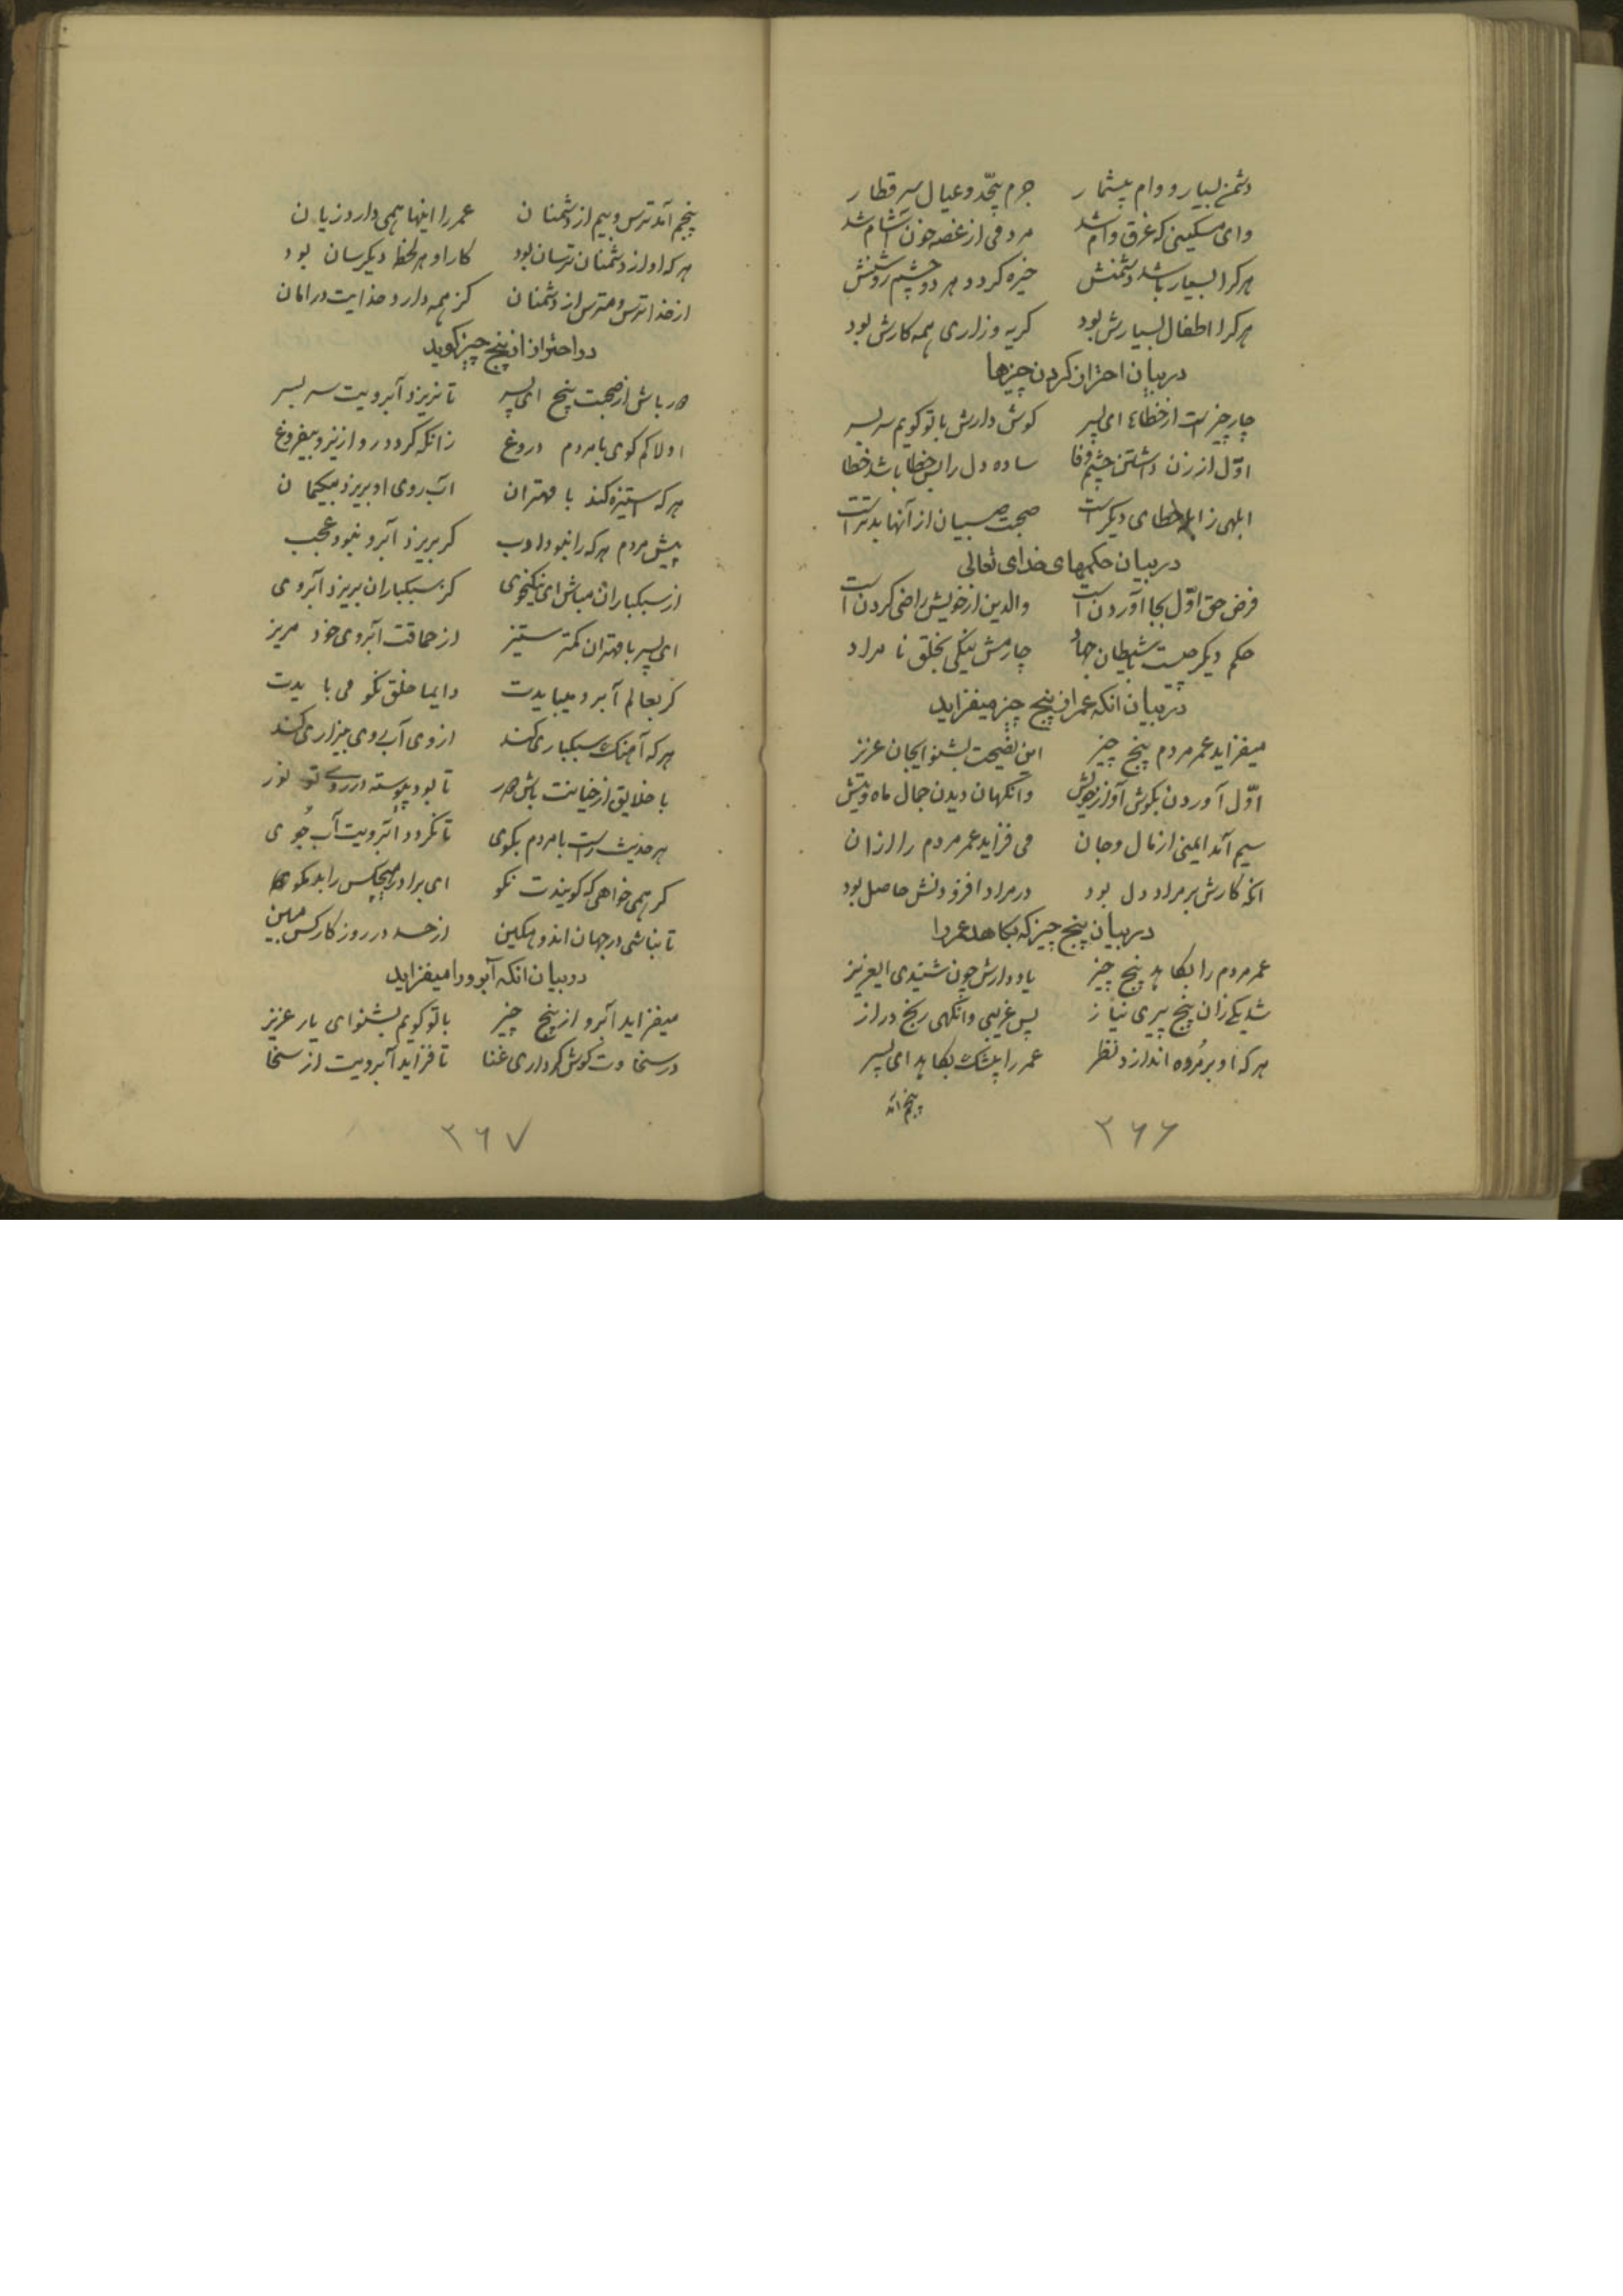 دشمن بسیار و وام بیشمار جرم بیحّد و عیال سر قطار
وای مسکینی که غرق وام شد مرد فی از غصه خون آشام شد
هرکرا بسیار باشد دشمنش خیره کردد هر دو چشم روشنش
هرکرا اطفال بسیارش بود کریه و زاری همه کارش بود
در بیان احتراز کردن چیزها
چار چیز است از خطاء ای پسر کوش دارش با تو کویم سر بسر
اوّل از زن داشتن چشم وفا ساده دل را بس خطا باشد خطا
ابلهی ز خطای دیکر است صحبت صبیان از آنها بدتر است
در بیان حکمهای خدای تعالی
فرض حق اوّل بجا آوردن است والدین از خویش راضی کردن است
حکم دیکر چیست با شیطان جهاد چارمش نیکی بخلق نامراد
در بیان انکه عمر از پنج چیز میفزاید
میفزاید عمر مردم پنج چیز این نصیحت بشنو ایجان عزیز
اوّل آوردن بکوش آواز خوش وانکهان دیدن جمال ماه وش
سیم آمد ایمنی از مال و جان می فزاید عمر مردم را ازان
انکه کارش بر مراد دل بود در مراد افزودنش حاصل بود
در بیان پنج چیز که بکاهد عمر را
عمر مردم را بکاهد پنج چیز یاد دارش چون شنیدی ایعزیز
شد یکے زان پنج پیری نیاز پس غریبی وانکهی رنج دراز
هر که او بر مُرده اندازد نظر عمر را بیشک بکاهد ای پسر
پنجم آمد
۲۶۶
پنجم آمد ترس و بیم از دشمنان عمر را اینها همی دارد زیان
هر که او از دشمنان ترسان بود کار او هر لحظه دیکرسان بود
از خدا ترس و مترس از دشمنان کز همه دارد خدایت در امان
در احتراز از پنج چیز کوید
دور باش از صحبت پنج ای پسر تا نریزد آبرویت سر بسر
اولا کم کوی با مردم دروغ زانکه کردد رو ازینرو بیفروغ
هر که استیزه کند با مهتران آب روی او بریزد بیکمان
پیش مردم هر که را نبود ادب کر بریزد آبرو نبود عجب
از سبکباران مباش ای نیکخوی کز سبکباران بریزد آبروی
ای پسر با مهتران کمتر ستیز از حماقت آبروی خود مریز
کر بعالم آبرو میبایدت دایما خلق نکو می بایدت
هر که آهنک سبکباری کند از وی آب روی بیزاری کند
با خلایق از خیانت باش دور تا بود پیوسته در روے تو نور
هر حدیث راست با مردم بکوی تا نکردد آبرویت آب جُوی
کر همی خواهی که کویندت نکو ای برادر هیچکس را بد مکوی
تا نباشی در جهان اندوهکین از حسد در روز کار کس مبین
در بیان انکه آبرو را میفزاید
میفزاید آبرو از پنج چیز با تو کویم بشنو ای یار عزیز
در سخاوت کوش کر داری غنا تا فزاید آبرویت از سخا
۲۶۷